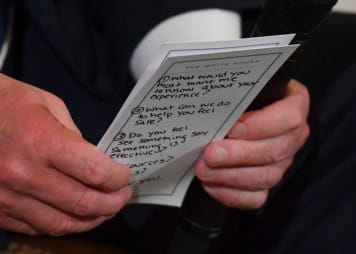 THE WHITE HOUSE
① What would you
most want me
to know about your
experience?
② What can we do
to help you feel
safe?
③ Do you feel
see something say
something is
effective?
ources?
s?
you